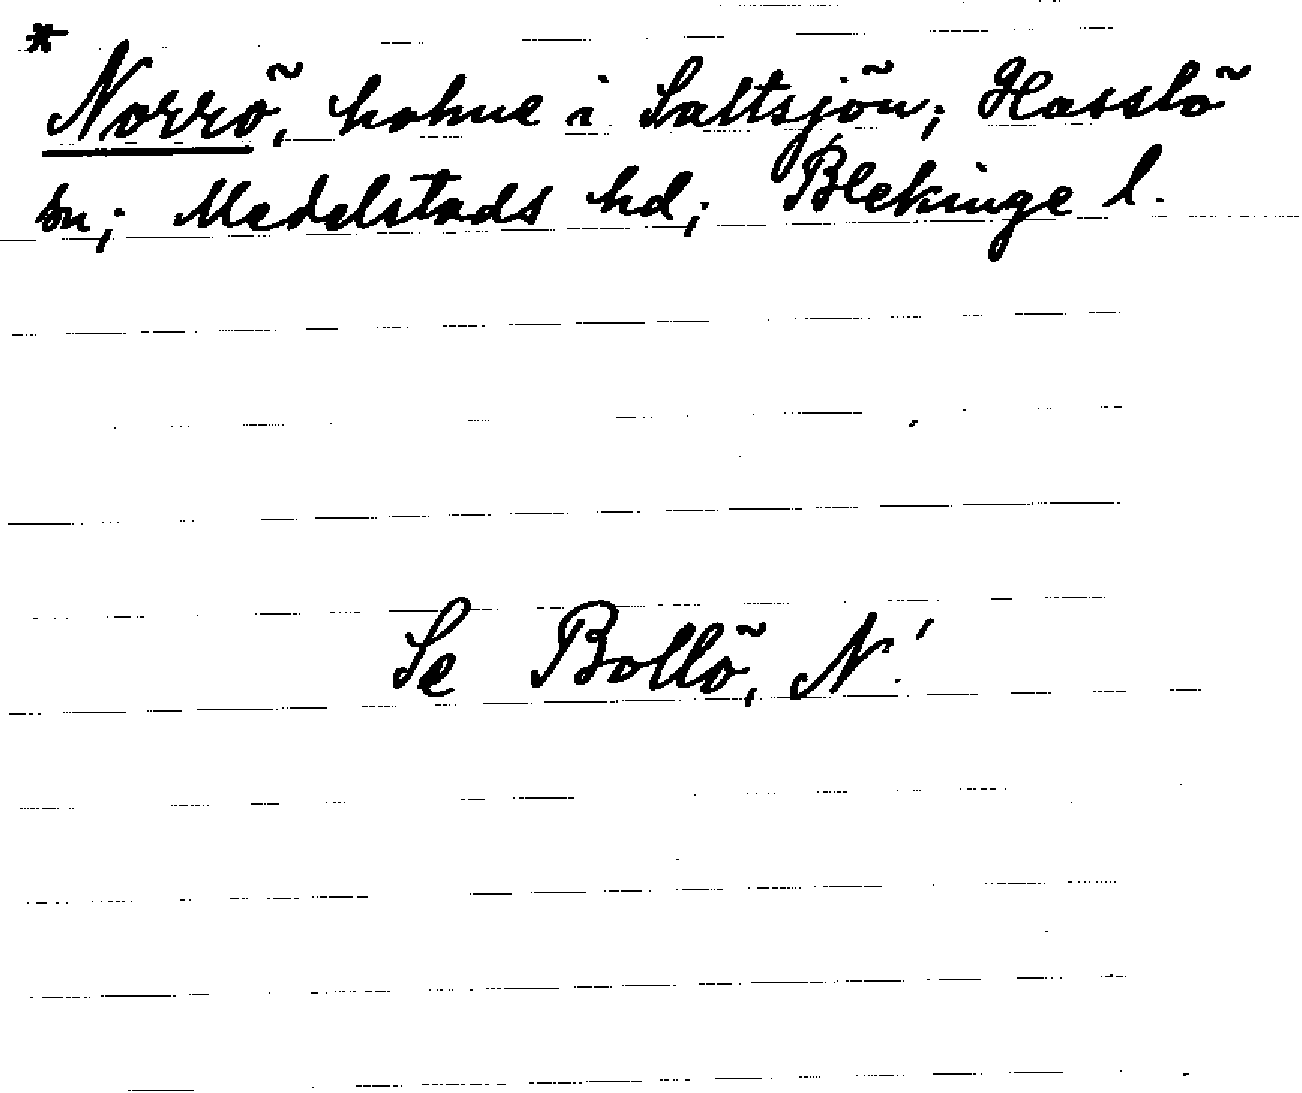 *
Norrö, holme i Saltsjön; Hasslö
sn; Medelstads hd; Blekinge l.
Se Bollö, N!